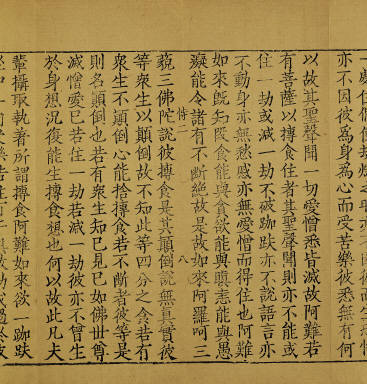 亦不因彼為身為心而受苦樂彼悉無有何
以故其聖聲聞一切愛憎悉皆滅故阿難若
有菩薩以摶食住者其聖聲聞則亦不能或
住一劫或減一劫不破跏趺亦不說語言亦
不動身亦無愁慼亦無愛憎而得住也阿難
如來既知既食能與貪欲能與瞋恚能與愚
癡能令諸有不斷絕故是故如來阿羅呵三
恃二 八
藐三佛陀說彼摶食是其顛倒說無真實彼
等衆生以顛倒故不知此等四分之食若有
衆生不顛倒心能捨摶食若不斷者彼等是
則名顛倒也若有衆生知已見已如佛世尊
滅憎愛已若住一劫若減一劫彼亦不曾生
於身想況復能生摶食想也何以故此凡夫
輩攝取執著所謂摶食阿難如來欲一跏趺